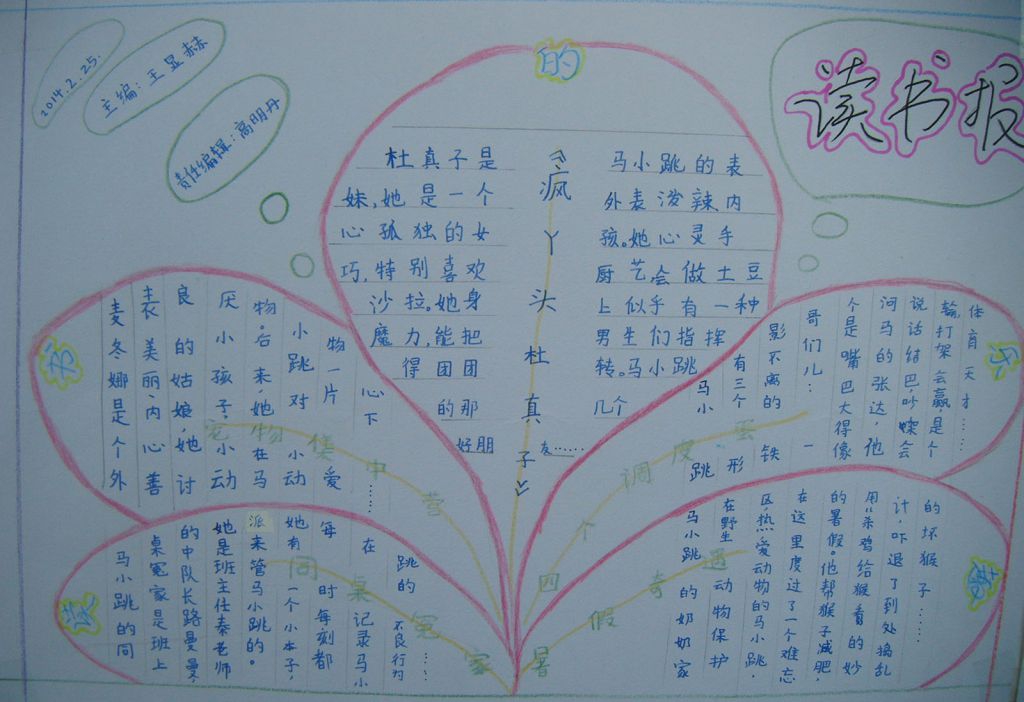 2014.2.25.
主编：王显赫
责任编辑：高明丹
读书报
读
书
的
乐
趣
《疯丫头杜真子》
杜真子是马小跳的表
妹,她是一个外表泼辣内
心孤独的女孩。她心灵手
巧,特别喜欢厨艺,会做土豆
沙拉。她身上似乎有一种
魔力,能把男生们指挥
得团团转。马小跳
的那几个
好朋友……
宠物集中营
麦冬娜是个外
表美丽、内心善
良的姑娘,她讨
厌小孩子,小动
物。后来她在马
小跳对小动
物一片爱
心下……
同桌冤家
马小跳的同
桌冤家是班上
的中队长路曼曼,
她是班主任秦老师
派来管马小跳的。
她有一个小本子,
每时每刻都
在记录马小
跳的不良行为……
四个调度蛋
马小跳
有三个形
影不离的铁
哥们儿:一
个是嘴巴大得像
河马的张达,他
说话结巴,吵架会
输,打架会赢,是个
体育天才……
暑假奇遇
马小跳的奶奶家
在野生动物保护
区,热爱动物的马小跳,
在这里度过了一个难忘
的暑假。他帮猴子减肥,
用“杀鸡给猴看”的妙
计,吓退了到处捣乱
的坏猴子……